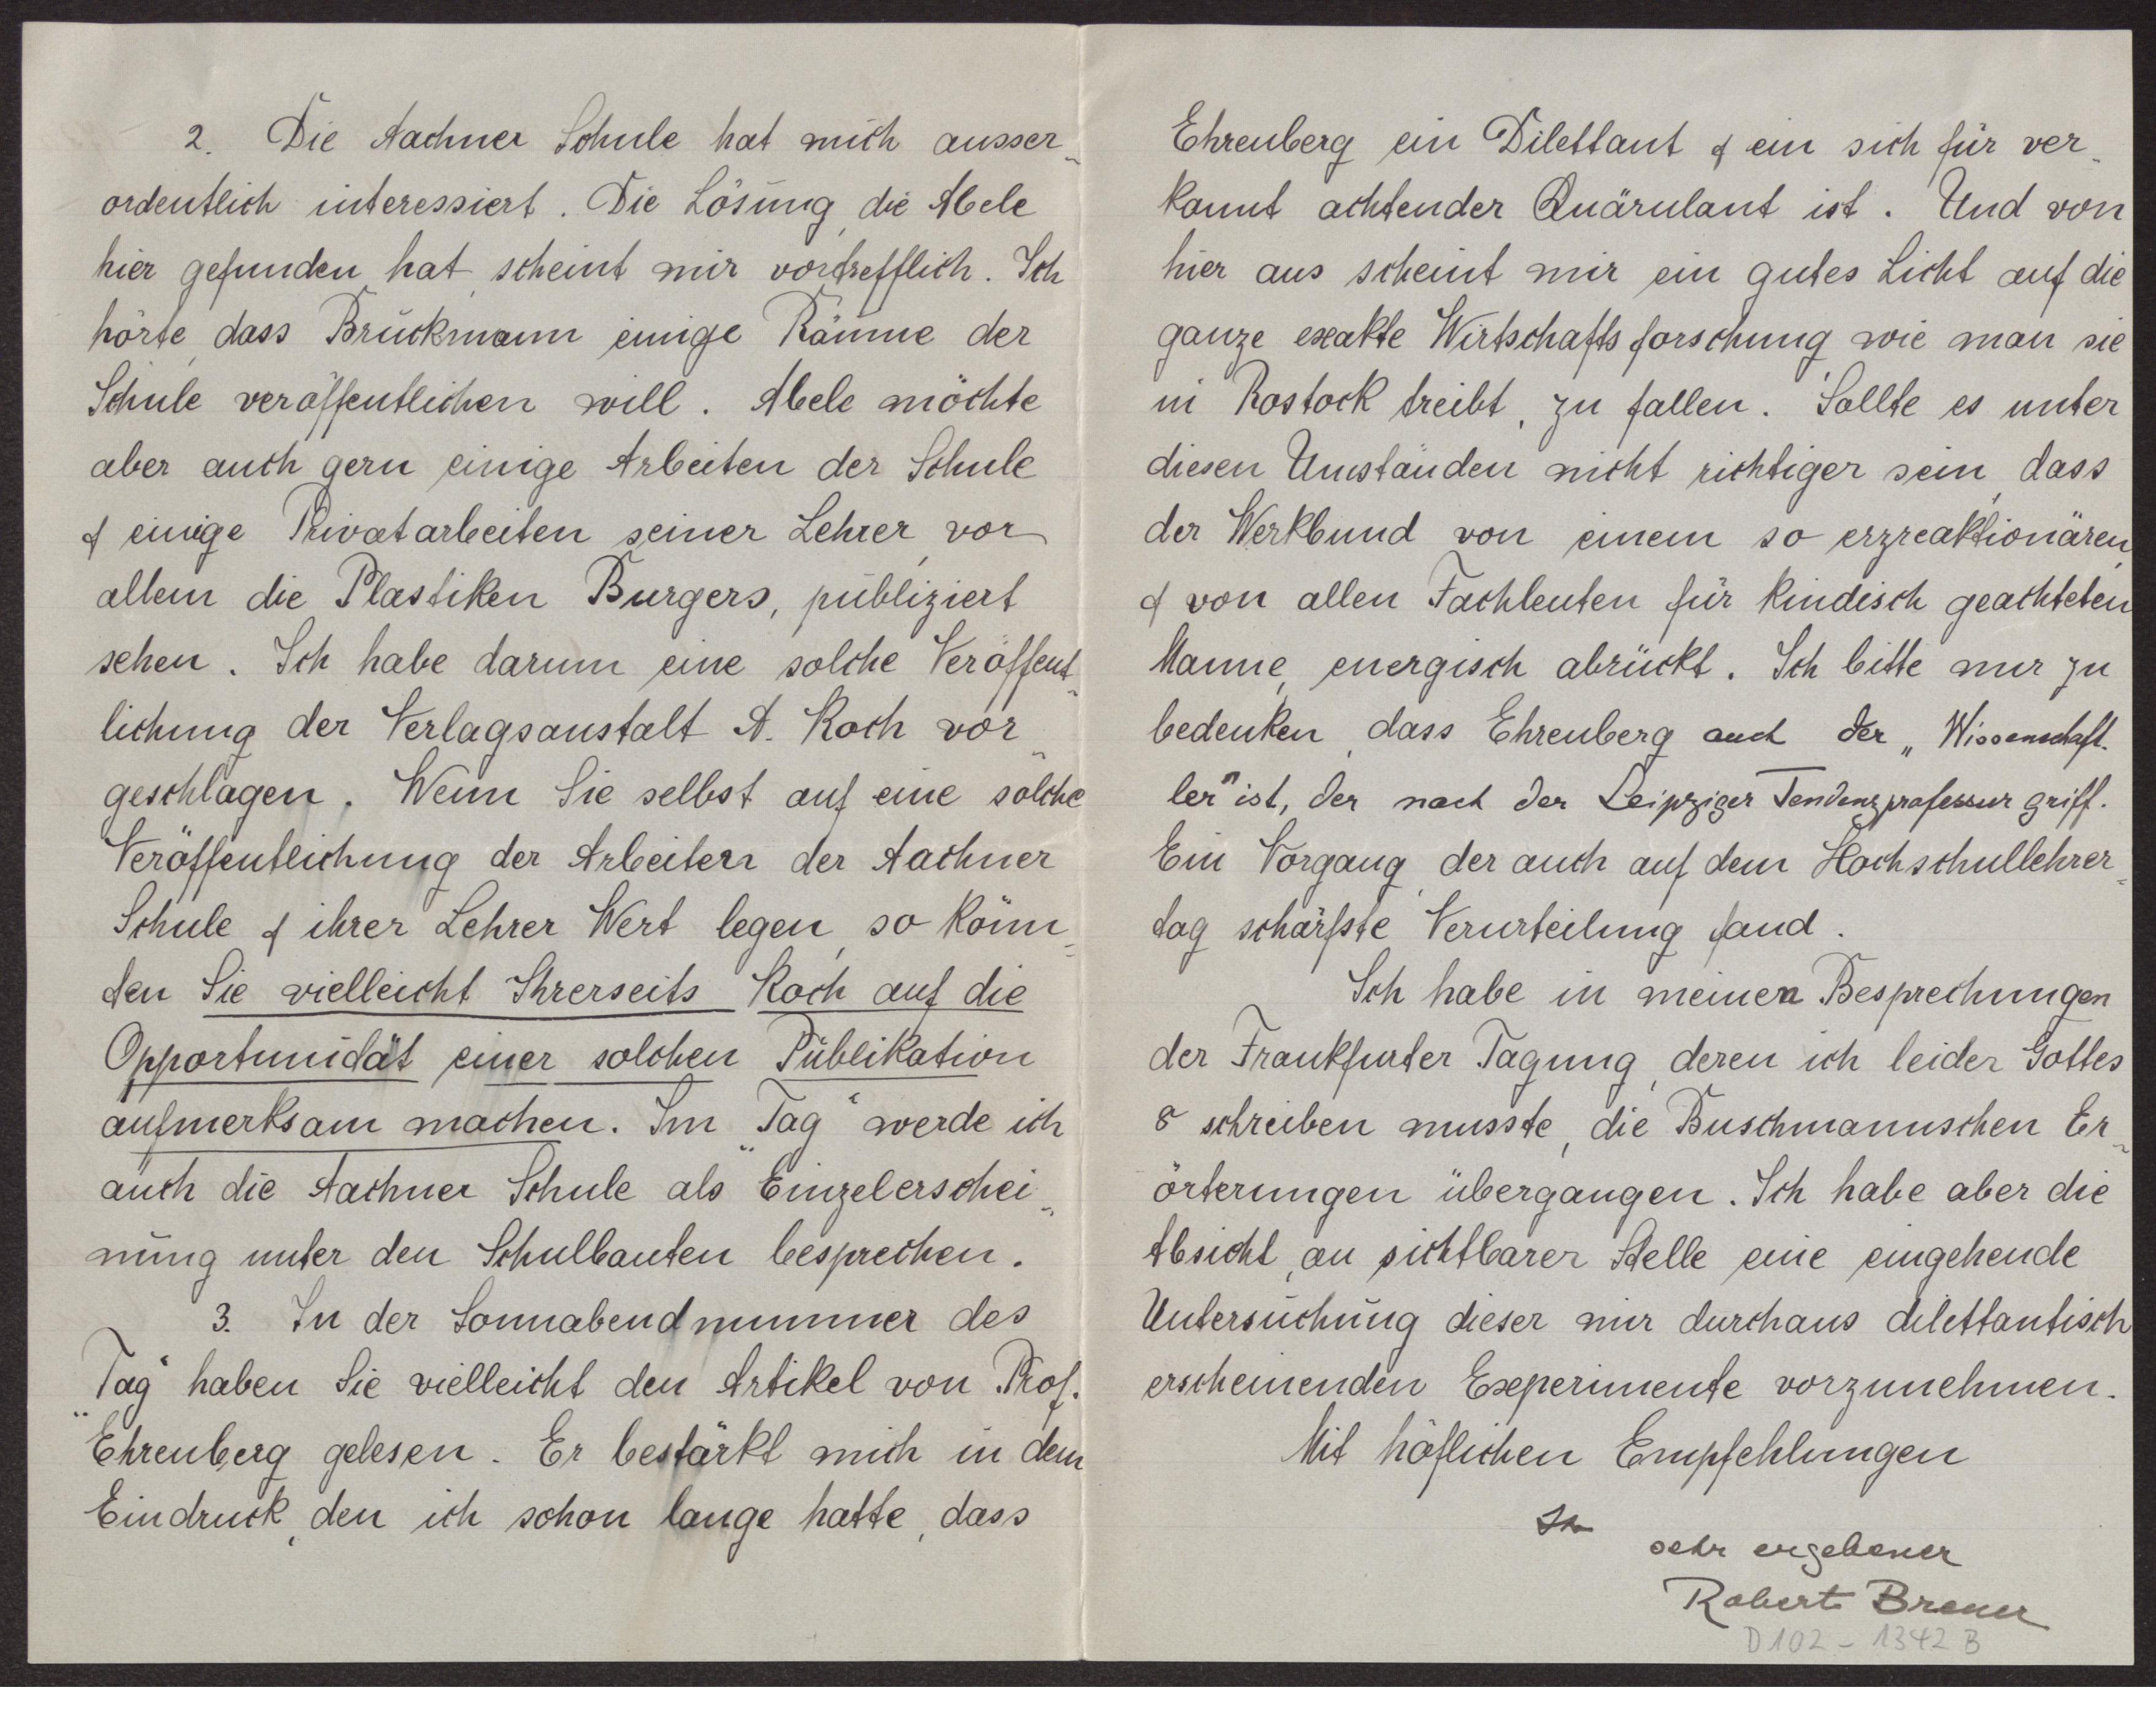 2. Die Aachner Schule hat mich ausser-
ordentlich interessiert. Die Lösung, die Abele
hier gefunden hat, scheint mir vortrefflich. Ich
hörte, dass Bruckmann einige Räume der
Schule veröffentlichen will. Abele möchte
aber auch gern einige Arbeiten der Schule
& einige Privatarbeiten seiner Lehrer, vor
allem die Plastiken Burgers, publiziert
sehen. Ich habe darum eine solche Veröffent-
lichung der Verlagsanstalt A. Koch vor-
geschlagen. Wenn Sie selbst auf eine solche
Veröffentlichung der Arbeiten der Aachner
Schule & ihrer Lehrer Wert legen, so könn-
ten Sie vielleicht Ihrerseits Koch auf die
Opportunidät einer solchen Publikation
aufmerksam machen. Im „Tag“ werde ich
auch die Aachner Schule als Einzelerschei-
nung unter den Schulbauten besprechen.
3. In der Sonnabendnummer des
„Tag“ haben Sie vielleicht den Artikel von Prof.
Ehrenberg gelesen. Er bestärkt mich in dem
Eindruck, den ich schon lange hatte, dass
Ehrenberg ein Dilettant & ein sich für ver-
kannt achtender Quärulant ist. Und von
hier aus scheint mir ein gutes Licht auf die
ganze exakte Wirtschaftsforschung, wie man sie
in Rostock treibt, zu fallen. Sollte es unter
diesen Umständen nicht richtiger sein, dass
der Werkbund von einem so erzreaktionären,
& von allen Fachleuten für kindisch geachteten
Manne, energisch abrückt. Ich bitte nur zu
bedenken, dass Ehrenberg auch der „Wissenschaft-
ler“ ist, der nach der Leipziger Tendenzprofessur griff.
Ein Vorgang, der auch auf dem Hochschullehrer-
tag schärfste Verurteilung fand.
Ich habe in meinen Besprechungen
der Frankfurter Tagung, deren ich leider Gottes
8 schreiben musste, die Buschmannschen Er-
örterungen übergangen. Ich habe aber die
Absicht, an sichtbarer Stelle eine eingehende
Untersuchung dieser mir durchaus dilettantisch
erscheinenden Experimente vorzunehmen.
Mit höflichen Empfehlungen
Ihr
sehr ergebener
Robert Breuer
D102-1342 B